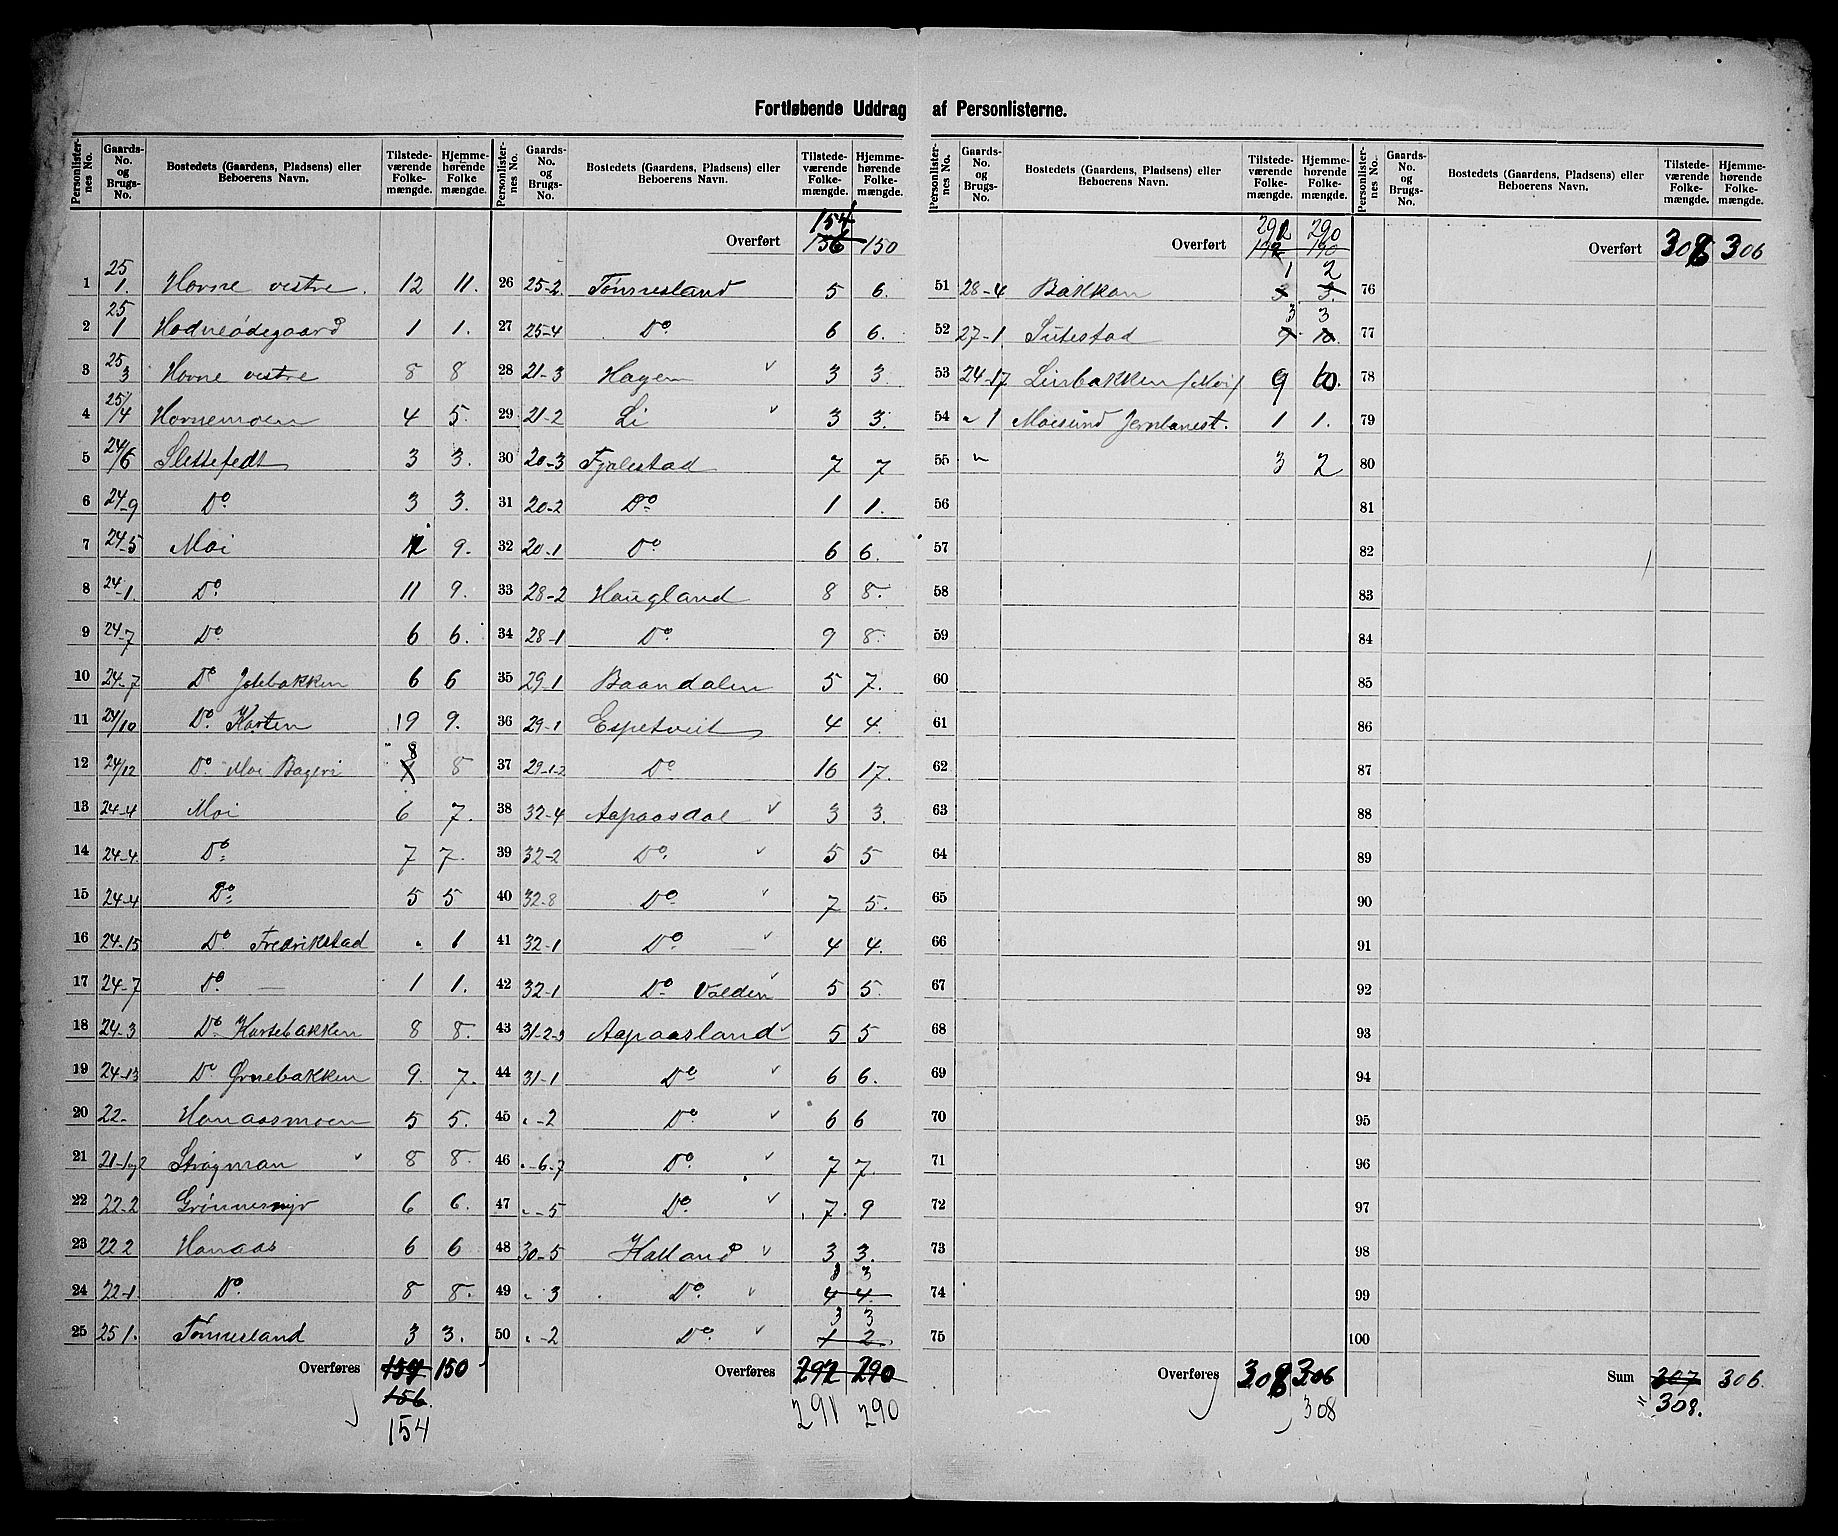 Fortløbende Uddrag af Personlisterne.
Personlisternes No. Gaards-No. og Brugs-No. Bostedets (Gaardens, Pladsens) eller Beboerens Navn. Tilstedeværende Folkemængde. Hjemmehørende Folkemængde.
1 25 1. Hovne vestre. 12 11.
2 25 1 Hodneødegaard 1 1.
3 25 3 Hovne vestre 8 8
4 25/4 Hovnemoen 4 5.
5 24/6 Slettefedt 3 3.
6 24-9 Do 3 3.
7 24-5 Moi 9.
8 24-1. Do. 11 9.
9 24-7 Do 6 6.
10 24-7 Do Jolebakken 6 6
11 24/10 Do. Korten 9 9.
12 24/12 Do. Moi Bageri 8 8
13 24-4 Moi 6 7.
14 24-4. Do 7 7.
15 24-4 Do 5 5
16 24-15 Do Fredrikstad . 1
17 24-7 Do. — 1 1.
18 24-3 Do Kortebakken 8 8.
19 24-13 Do Ørnebakken 9. 7.
20 22- Honaasmoen 5 5.
21 21-1og2 Strøgman 8 8.
22 22-2 Grønnesmyr 6 6.
23 22 2 Honaas 6 6
24 22-1 Do. 8 8.
25 25 1. Tonnesland 3 3.
Overføres 157 150
156.
154
Personlisternes No. Gaards-No. og Brugs-No. Bostedets (Gaardens, Pladsens) eller Beboerens Navn. Tilstedeværende Folkemængde. Hjemmehørende Folkemængde.
154
Overført 156 150
26 25-2. Tonnesland 5 6.
27 25-4 Do. 6 6.
28 21-3 Hagen ✓ 3 3.
29 21-2 Li ✓ 3 3.
30 20-3 Fjelestad 7 7
31 20-2 Do 1 1.
32 20-1 Do 6 6.
33 28-2 Haugland 8 8.
34 28-1 Do. 9 8.
35 29-1 Baandalen 5 7.
36 29-1 Espetveit 4 4.
37 29-1-2 Do 16 17.
38 32-4 Aapaasdal ✓ 3 3.
39 32-2 Do. ✓ 5 5
40 32-8 Do ✓ 7 5.
41 32-1 Do — ✓ 4 4.
42 32-1 Do Volden ✓ 5 5.
43 31-2-3 Aapaasland ✓ 5 5
44 31-1 Do ✓ 6 6.
45 „-2 Do ✓ 6 6
46 „-6-7 Do. ✓ 7 7.
47 „-5 Do. ✓ 7. 9
48 30-5 Kalland ✓ 3 3.
3 3
49 „ 3 Do. ✓ 4 4.
3 3
50 „-2 Do. ✓ 1 2.
Overføres 292 290
291 290
Personlisternes No. Gaards-No. og Brugs-No. Bostedets (Gaardens, Pladsens) eller Beboerens Navn. Tilstedeværende Folkemængde. Hjemmehørende Folkemængde.
291 290
Overført 192 190
1 2
51 28-4 Bakkan 3 3.
3 3
52 27-1 Sutestad 9 10.
53 24-17 Linbakken (Moi) 9 10.
54 „ 1 Moisund Jernbanest. 1 1.
55 „ 3 2
56
57
58
59
60
61
62
63
64
65
66
67
68
69
70
71
72
73
74
75
Overføres 308 306
308
Personlisternes No. Gaards-No. og Brugs-No. Bostedets (Gaardens, Pladsens) eller Beboerens Navn. Tilstedeværende Folkemængde. Hjemmehørende Folkemængde.
Overført 308 306
76
77
78
79
80
81
82
83
84
85
86
87
88
89
90
91
92
93
94
95
96
97
98
99
100
Sum 307 306.
= 308.